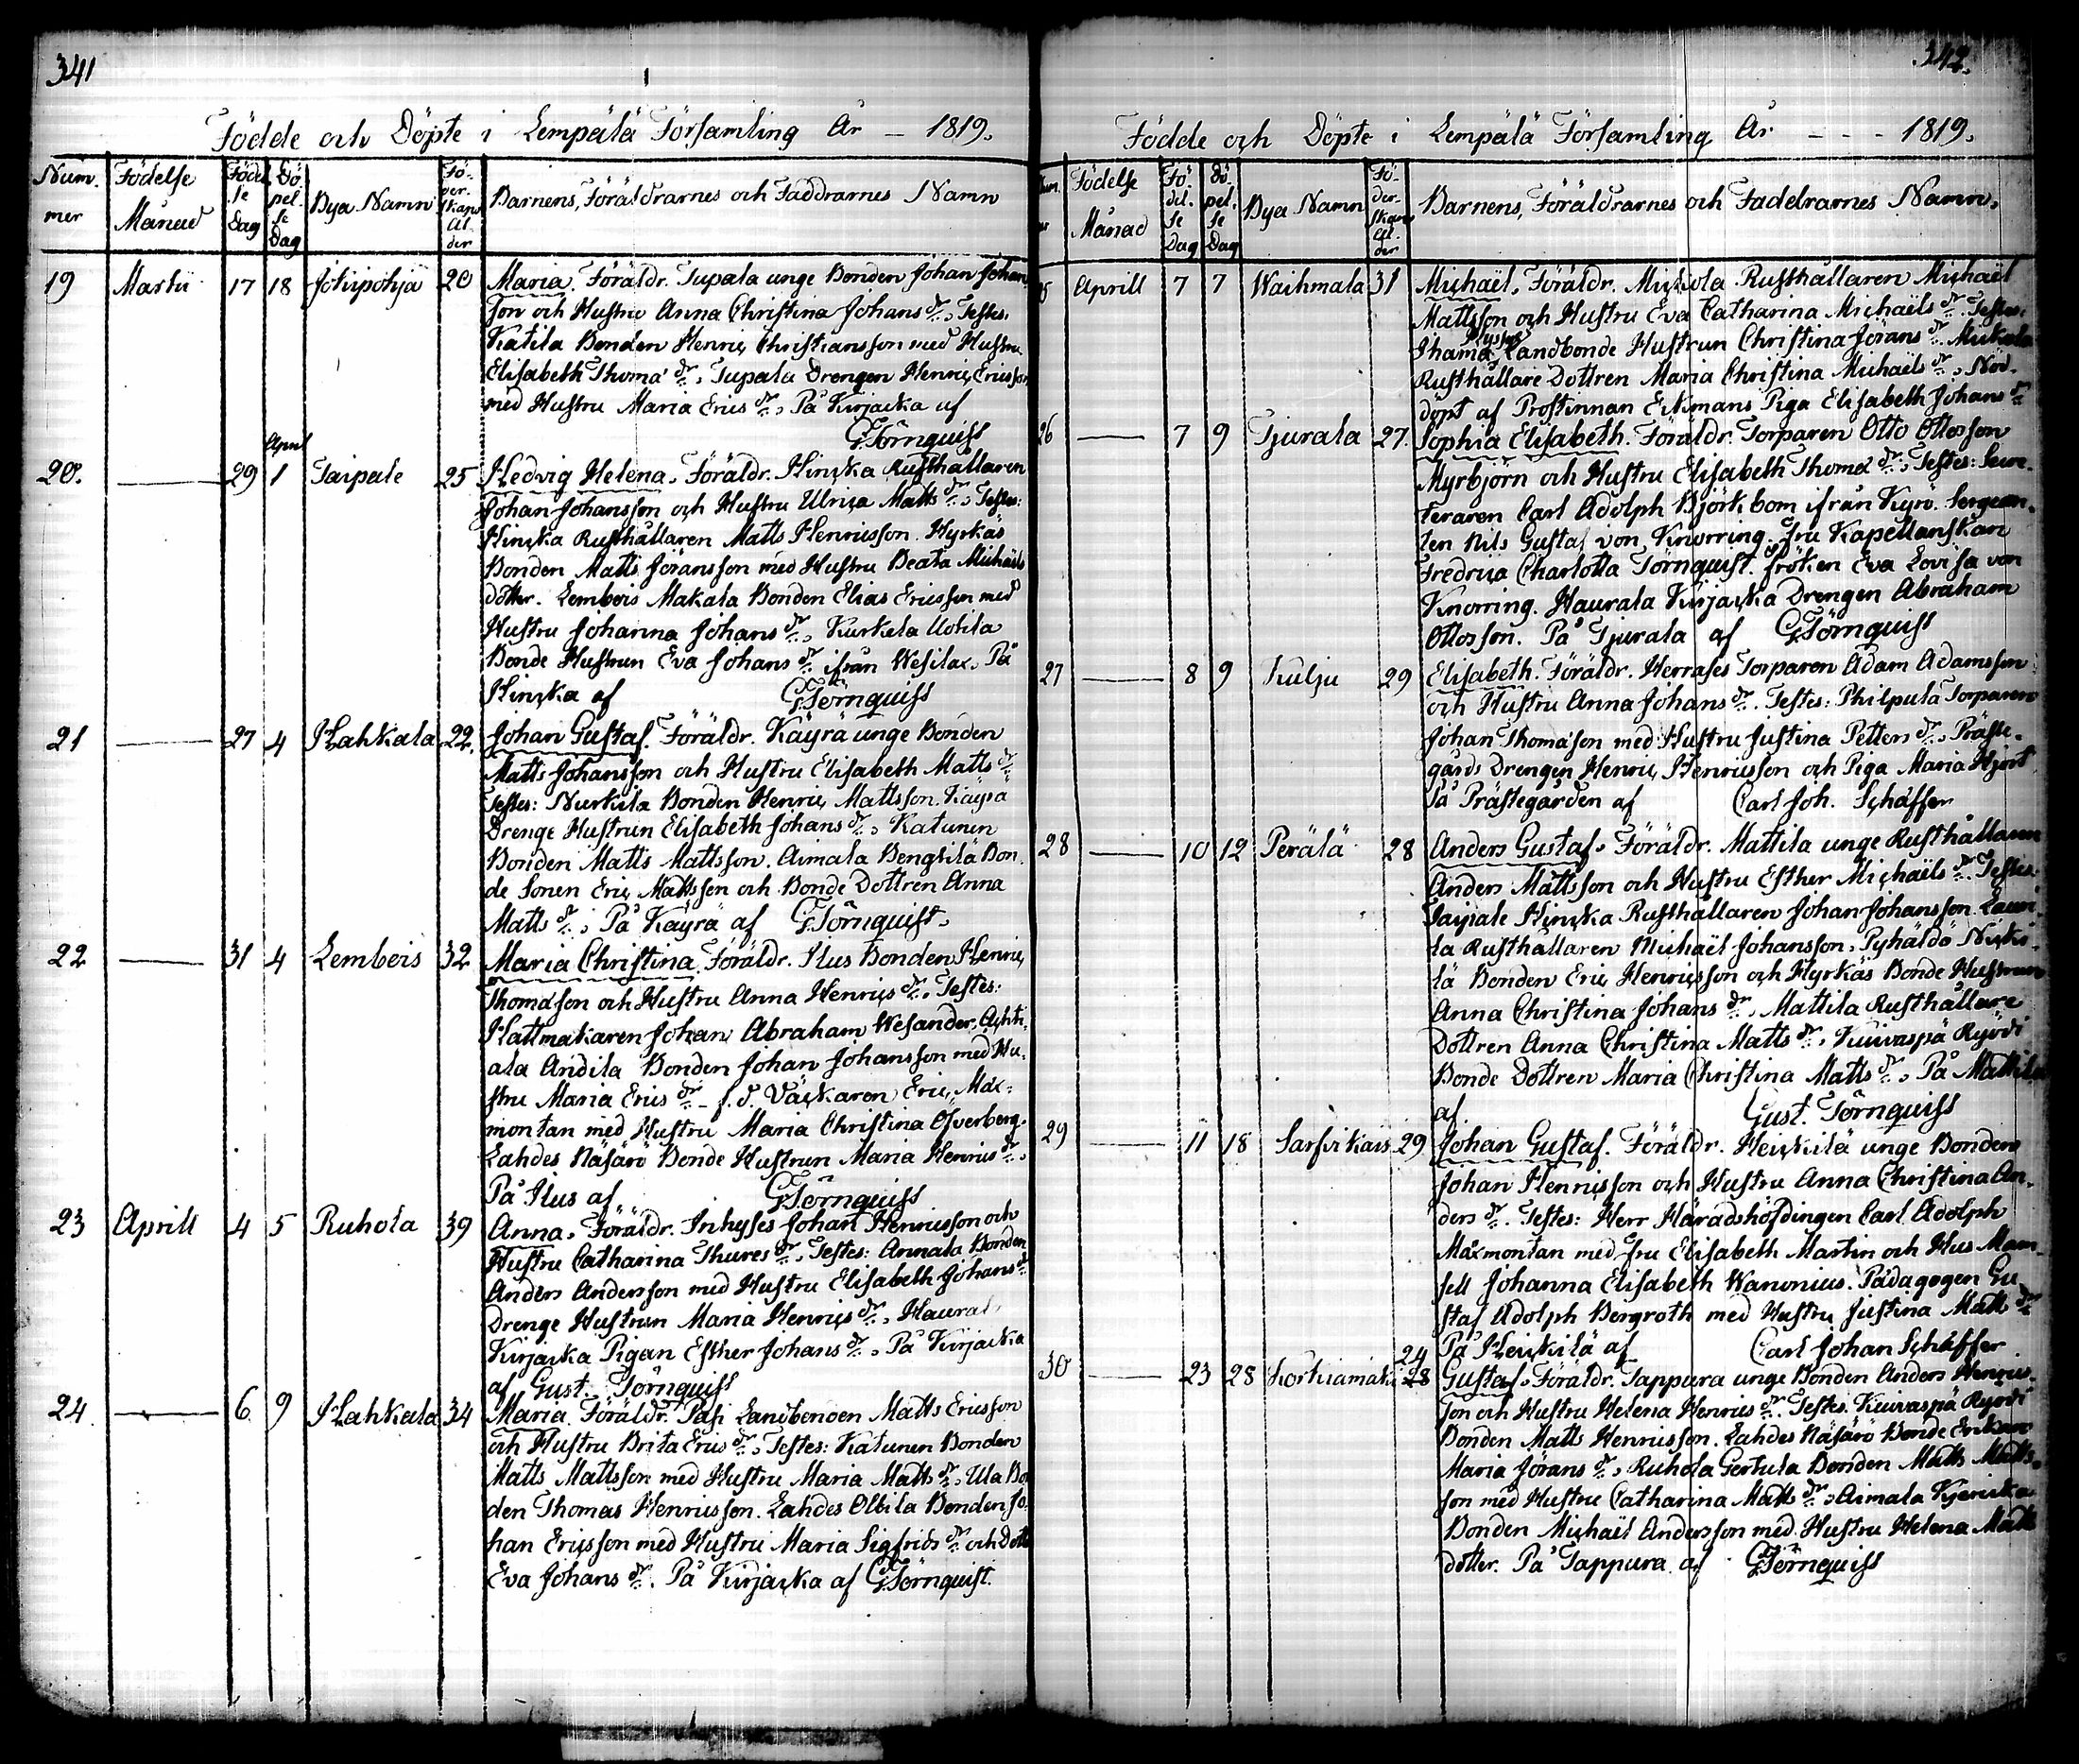 341
Födde och Döpte i Lempälä Församling År – 1819.
Num-
mer
Födelse
Månad
Födel
se
Dag
Dö
pel-
se
Dag
Bya Namn
Fö-
der-
skans
Ål-
der
Barnens, Föräldrarnes och Faddrarnes Namn
19 Martii 17 18 Jokipohja 20 Maria. Föräldr. Tupala unge Bonden Johan Johan
son och Hustru Anna Christina Johans dr. Testes:
Katila Bonden Henric Christiansson med Hustru
Elisabeth Thomæ dr. Tupala Drengen Henric Ericsson
med Hustru Maria Erics dr. På Kirjacka af
GTörnquist
April
20. — 29 1 Taipale 25 Hedvig Helena. Föräldr. Hincka Rusthållaren
Johan Johansson och Hustru Ulrica Matts dr. Testes:
Hincka Rusthållaren Matts Henricsson. Hyrkäs
Bonden Matts Jöransson med Hustru Beata Michaels
dotter. Lembois Makala Bonden Elias Ericsson med
Hustru Johanna Johans dr. Kurkela Uotila
Bonde Hustrun Eva Johans dr. ifrån Wesilax. På
Hincka af GTörnquist
21 — 27 4 Hahkala 22. Johan Gustaf. Föräldr. Käyrä unge Bonden
Matts Johansson och Hustru Elisabeth Matts dr.
Testes: Nurkila Bonden Henric Mattsson. Käyrä
Drenge Hustrun Elisabeth Johans dr. Katunen
Bonden Matts Mattsson. Aimala Bengtilä Bon-
de Sonen Eric Mattsson och Bonde Dottren Anna
Matts dr. På Käyrä af GTörnquist.
22 — 31 4 Lembois 32 Maria Christina. Föräldr. Ilus Bonden Henric
Thomasson och Hustru Anna Henrics dr. Testes:
Hattmakaren Johan Abraham Wesander. Achti-
ala Andila Bonden Johan Johansson med Hu-
stru Maria Erics dr. f.d. Väckaren Eric Max-
montan med Hustru Maria Christina Öfverberg.
Lahdes Näfärö Bonde Hustrun Maria Henrics dr.
På Ilus af GTörnquist
23 Aprill 4 5 Ruhola 39 Anna. Föräldr. Inhyses Johan Henricsson och
Hustru Catharina Thures dr. Testes: Annala Bonden
Anders Andersson med Hustru Elisabeth Johans dr
Drenge Hustrun Maria Henrics dr. Haural
Kirjacka Pigan Esther Johans dr. På Kirjacka
af Gust. Törnquist
24. — 6 9 Hahkala 34 Maria. Föräldr. Pasi Landbonden Matts Ericsson
och Hustru Brita Erics dr. Testes: Katunen Bonden
Matts Mattsson med Hustru Maria Matts dr. Ula Bo
den Thomas Henricsson. Lahdes Olbila Bonden Jo-
han Ericsson med Hustru Maria Sigfrids dr. och Dott
Eva Johans dr. På Kirjacka af GTörnquist.
342.
Födde och Döpte i Lempälä Församling År – – – 1819.
Födelse
Månad
Fö-
del-
se
Dag
Dö-
pel-
se
Dag
Bya Namn
Fö-
der-
skans
Ål-
der
Barnens, Föräldrarnes och Faddrarnes Namn.
5 Aprill 7 7 Waihmala 31 Michaël. Föräldr. Mickola Rusthållaren Michaël
Mattsson och Hustru Eva Catharina Michaëls dr. Testes:
Landbonde Hustrun Christina Jörans dr.
Rusthållare Dottren Maria Christina Michaëls dr. Nöd-
döpt af Prostinnan Eckmans Piga Elisabeth Johans dr
26 — 7 9 Tjurala 27. Sophia Elisabeth. Föräldr. Torparen Otto Ottosson
Myrbjörn och Hustru Elisabeth Thomæ dr. Testes: Secre-
teraren Carl Adolph Björkbom ifrån Kyrö. Sergean-
ten Nils Gustaf von Knorring. Fru Kapellanskan
Fredrica Charlotta Törnquist. Fröken Eva Lovisa von
Knorring. Haurala Kirjacka Drengen Abraham
Ottosson. På Tjurala af GTörnquist
27 — 8 9 Kulju 29 Elisabeth. Föräldr. Herrases Torparen Adam Adamsson
och Hustru Anna Johans dr. Testes: Philpula Torparen
Johan Thomasson med Hustru Justina Petters dr. Präste-
gårds Drengen Henric Henricsson och Piga Maria Hjort
På Prästegården af Carl Joh. Schäffer
28 — 10 12 Perälä 28 Anders Gustaf. Föräldr. Mattila unge Rusthållaren
Anders Mattsson och Hustru Esther Michaëls dr. Testes:
Taipale Hincka Rusthållaren Johan Johansson. Lauri-
la Rusthållaren Michaël Johansson. Pyhäldö Nicki-
lä Bonden Eric Henricsson och Hyrkäs Bonde Hustrun
Anna Christina Johans dr. Mattila Rusthållare
Dottren Anna Christina Matts dr. Kuivaspä Ryödi
Bonde Dottren Maria Christina Matts dr. På Mattila
af Gust. Törnquist
29 — 11 18 Sarfvikais 29 Johan Gustaf. Föräldr. Heickilä unge Bonden
Johan Henricsson och Hustru Anna Christina An-
ders dr. Testes: Herr Häradshöfdingen Carl Adolph
Maxmontan med Fru Elisabeth Martin och Hus Mam-
sell Johanna Elisabeth Wanonius. Pädagogen Gu-
staf Adolph Bergroth med Hustru Justina Matts dr
På Heickilä af Carl Johan Schäffer
24
30 — 23 28 Korkiamäki 28 Gustaf. Föräldr. Tappura unge Bonden Anders Henrics-
son och Hustru Helena Henrics dr. Testes. Kuivaspä Ryödi
Bonden Matts Henricsson. Lahdes Näfärö Bonde Enkan
Maria Jörans dr. Ruhola Gertula Bonden Matts Matts-
son med Hustru Catharina Matts dr. Aimala
Bonden Michaël Andersson med Hustru Helena Matts
dotter. På Tappura af GTörnquist